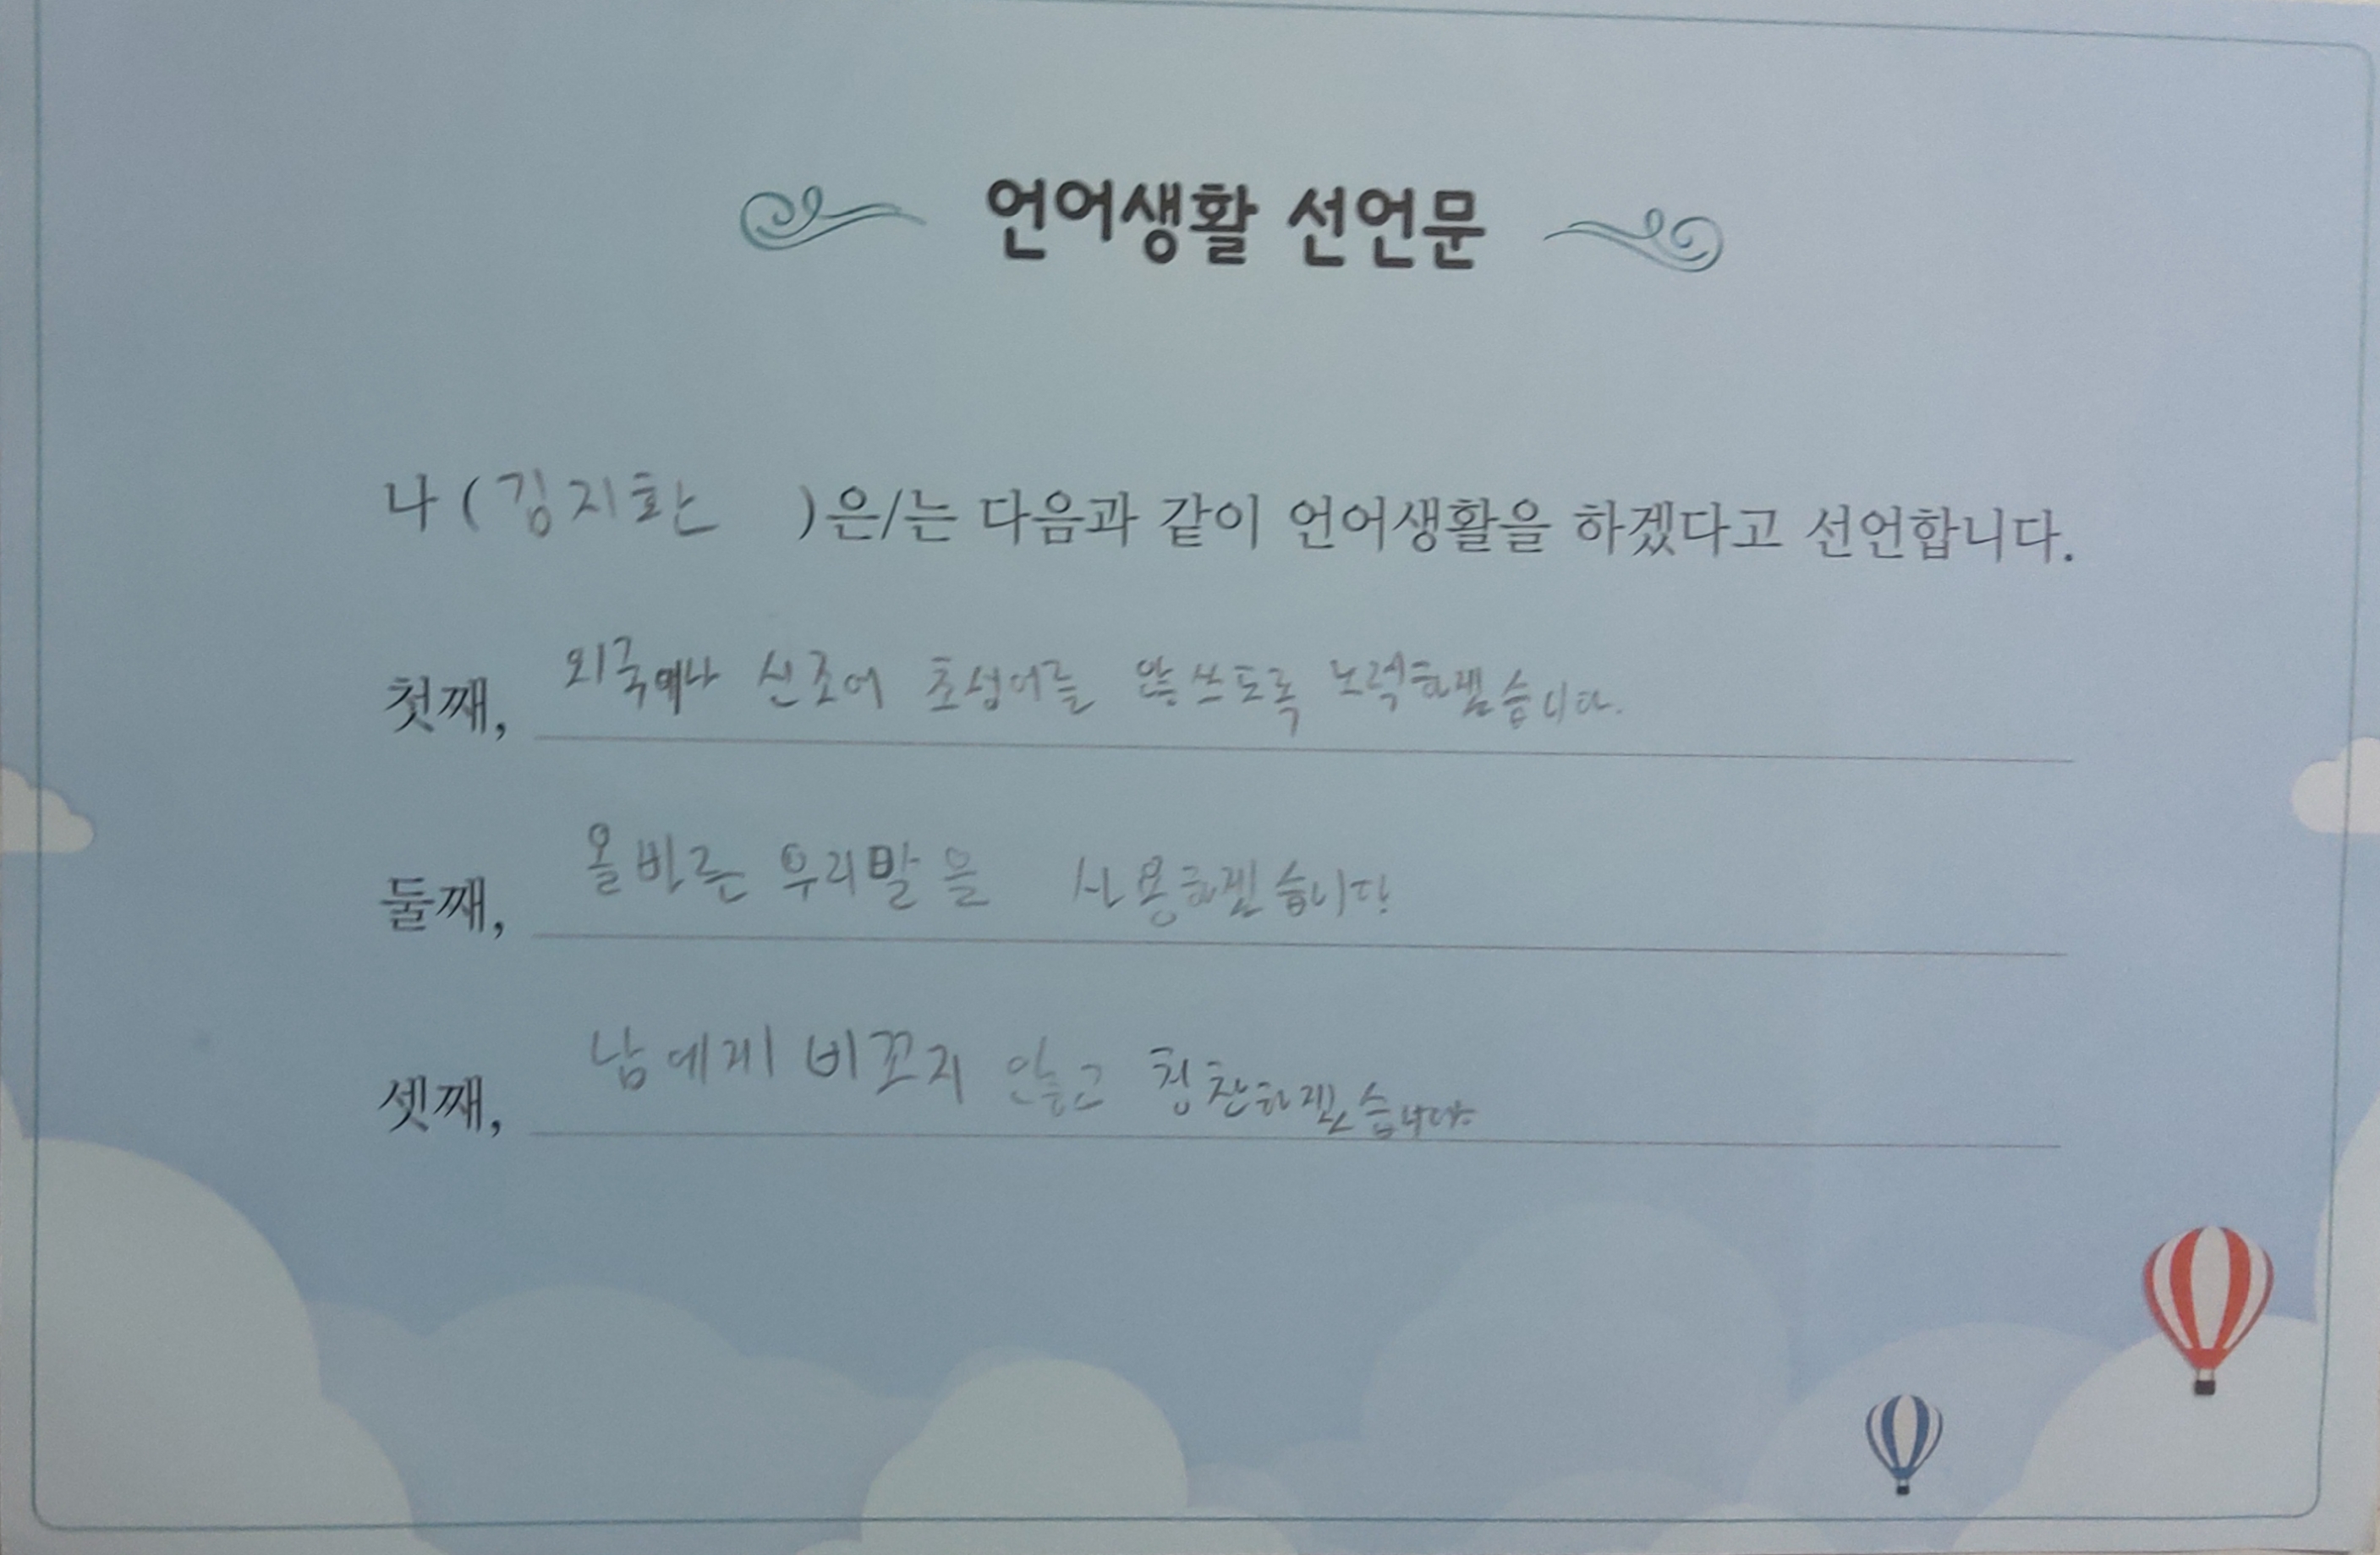 언어생활 선언문
나 (김지환 )은/는 다음과 같이 언어생활을 하겠다고 선언합니다.
첫째, 외국어나 신조어 초성어를 않쓰도록 노력하겠습니다.
둘째, 올바른 우리말을 사용하겠습니다
셋째, 남에게 비꼬지 않고 칭찬하겠습니다